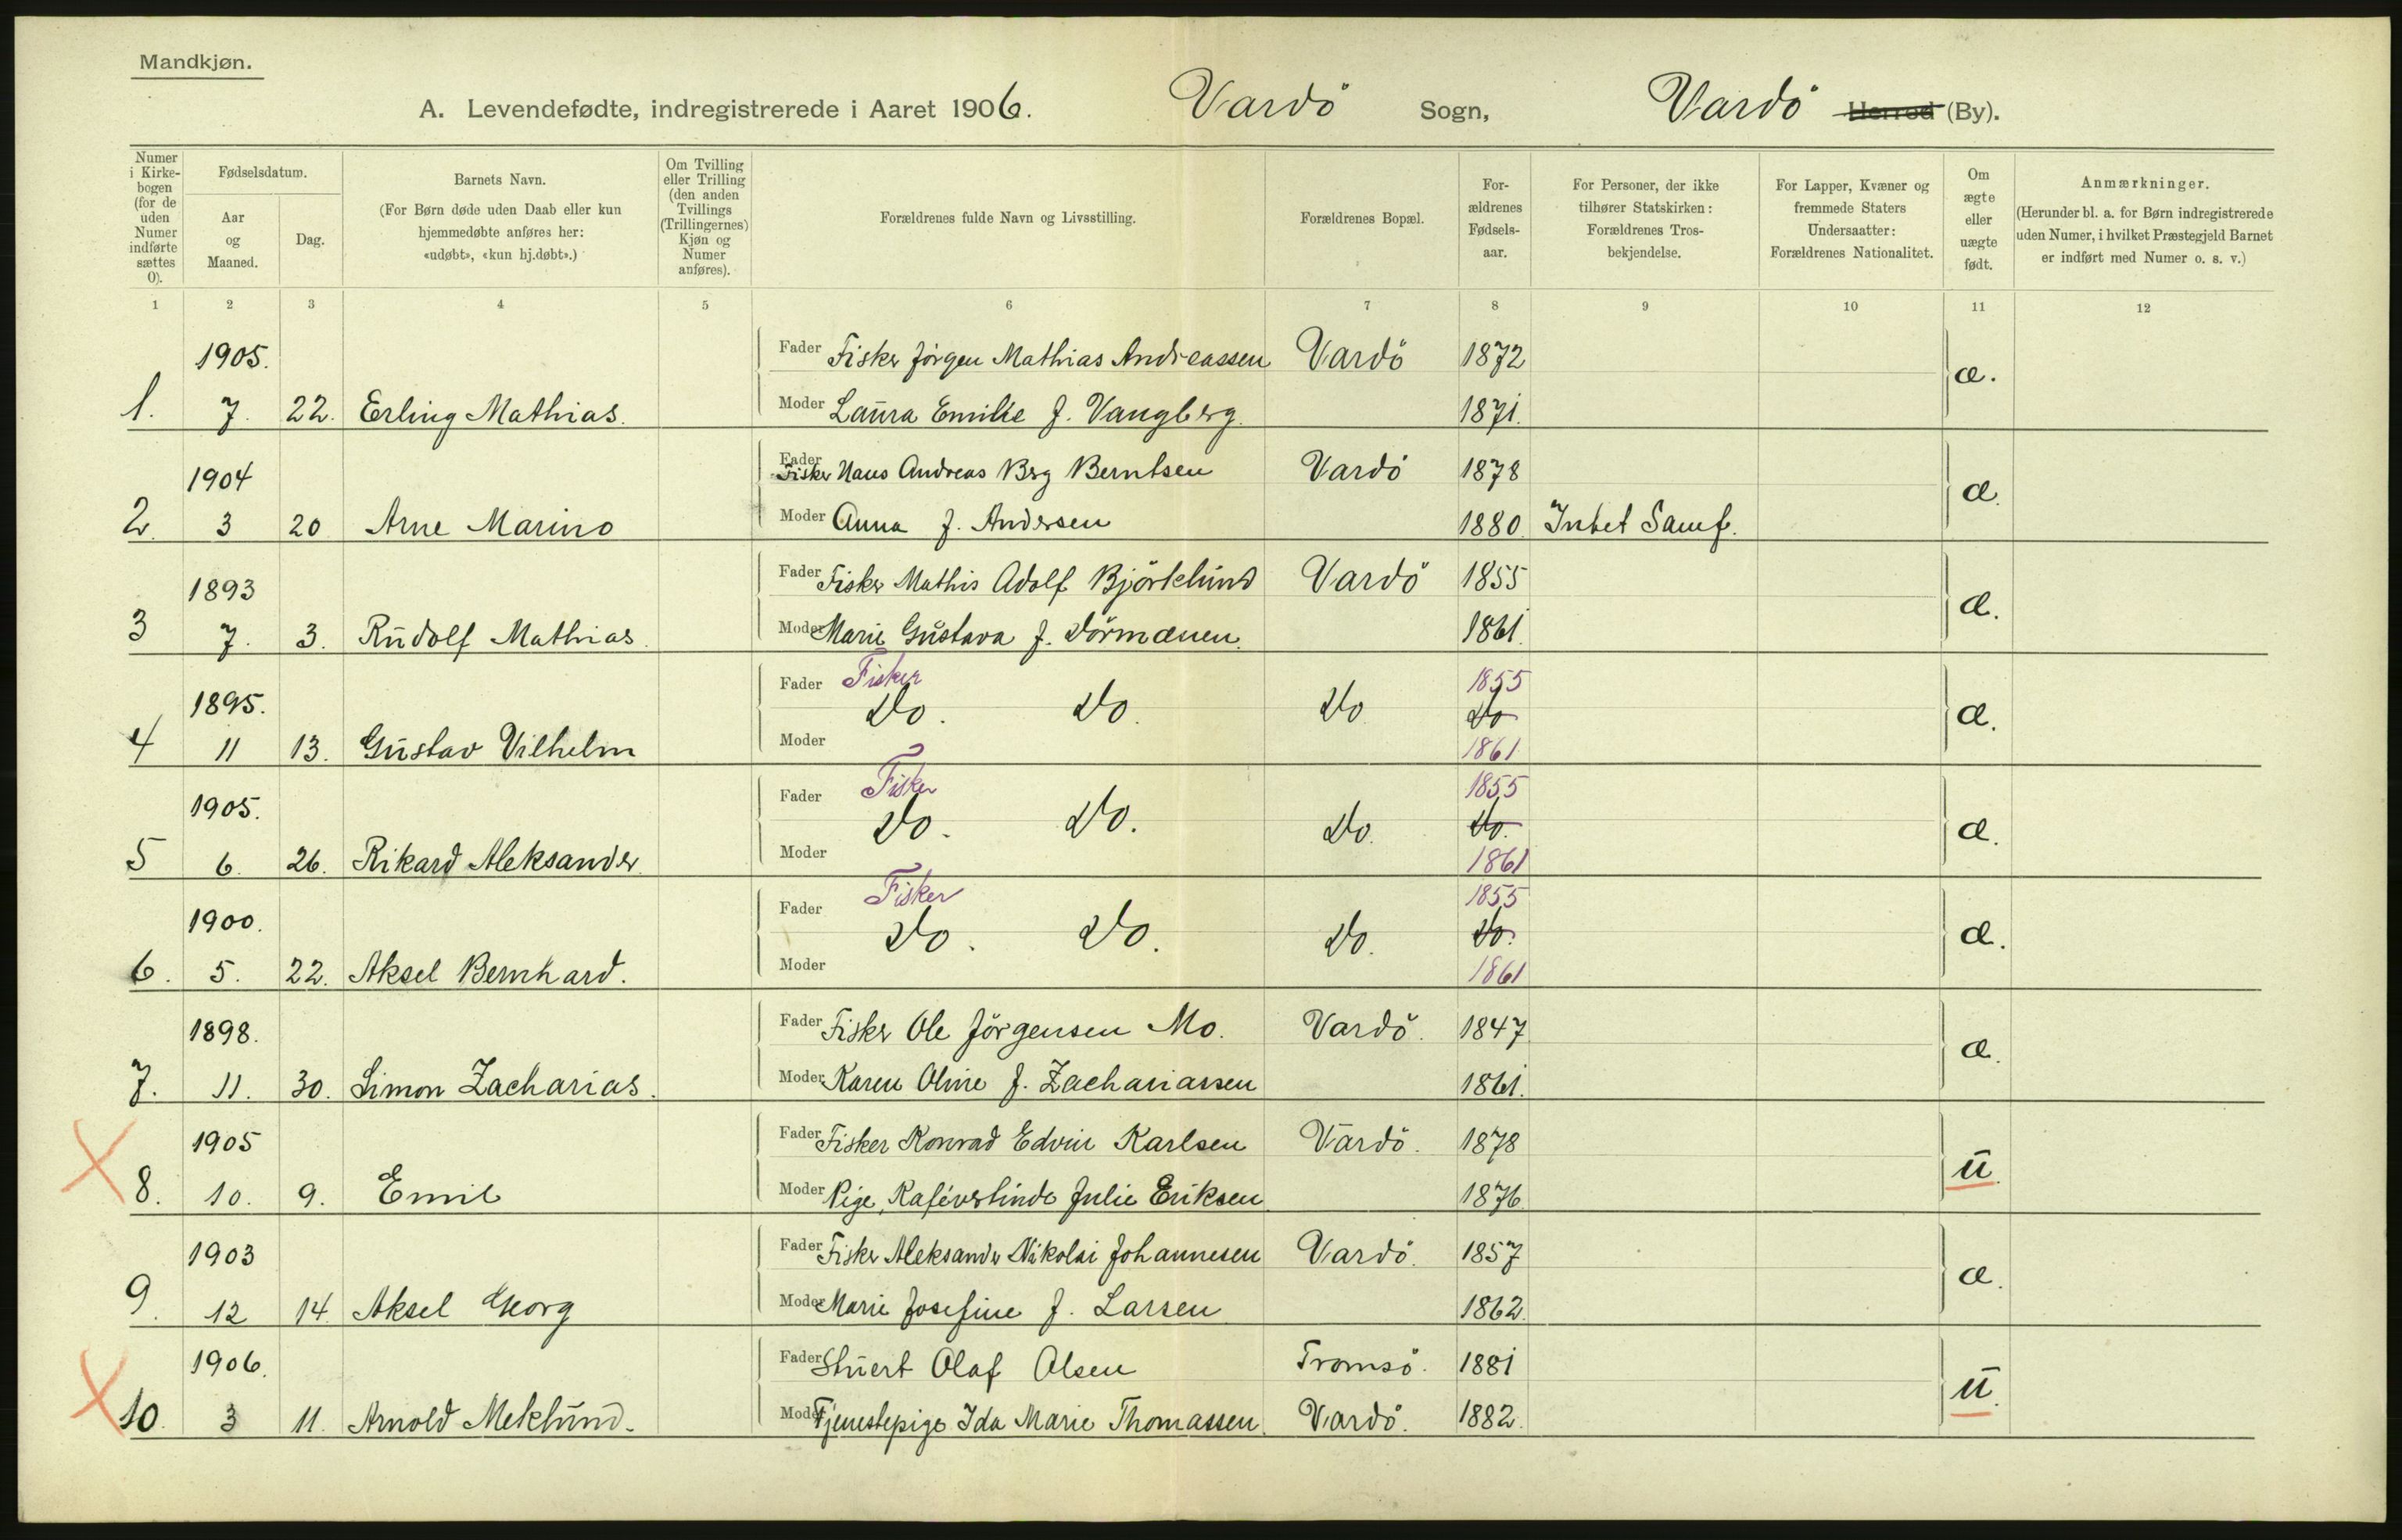 Mandkjøn.
A. Levendefødte, indregistrerede i Aaret 1906. Vardö Sogn, Vardö Herred (By).
Numer i Kirke-bogen (for de uden Numer indførte sættes 0).
Fødselsdatum.
Aar og Maaned.
Dag.
Barnets Navn.
(For Børn døde uden Daab eller kun hjemmedøbte anføres her: «udøbt», «kun hj.døbt».)
Om Tvilling eller Trilling (den anden Tvillings (Trillingernes) Kjøn og Numer anføres).
Forældrenes fulde Navn og Livsstilling.
Forældrenes Bopæl.
For-ældrenes Fødsels-aar.
For Personer, der ikke tilhører Statskirken: Forældrenes Tros-bekjendelse.
For Lapper, Kvæner og fremmede Staters Undersaatter: Forældrenes Nationalitet.
Om ægte eller uægte født.
Anmærkninger.
(Herunder bl. a. for Børn indregistrerede uden Numer, i hvilket Præstegjeld Barnet er indført med Numer o. s. v.)
1 2 3 4 5 6 7 8 9 10 11 12
1905. Fader Fisker Jörgen Mathias Andreassen Vardö 1872 æ.
1. 7. 22. Erling Mathias. Moder Laura Emilie f. Vangberg. 1871.
1904 Fader Fisker Hans Andreas Berg Berntsen Vardö 1878 æ.
2. 3 20 Arne Marino Moder Anna f. Andersen 1880. Intet Samf.
1893 Fader Fisker Mathis Adolf Björklund Vardö 1855 æ.
3 7. 3. Rudolf Mathias. Moder Marie Gustava f. Dörmænen. 1861.
1895. Fader Fisker Do. Do. Do 1855 Do æ.
4 11 13. Gustav Vilhelm Moder 1861
1905. Fader Fisker Do. Do. Do. 1855 Do. æ.
5 6. 26. Rikard Aleksander. Moder 1861
1900. Fader Fisker Do. Do. Do. 1855 Do. æ.
6. 5. 22. Aksel Bernhard. Moder 1861
1898. Fader Fisker Ole Jörgensen Mo. Vardö. 1847 æ.
7. 11. 30. Simon Zacharias. Moder Karen Oline f. Zachariassen 1861.
1905 Fader Fisker Konrad Edvin Karlsen Vardö. 1878 u.
8. 10. 9. Emil Moder Pige, Kaféverlinde Julie Eriksen. 1876
1903 Fader Fisker Aleksander Nikolai Johannesen Vardö. 1857 æ.
9. 12 14. Aksel Georg Moder Marie Josefine f. Larsen 1862.
1906. Fader Stuert Olaf Olsen Tromsö. 1881 u.
10. 3 11. Arnold Meklund. Moder Tjenestepige Ida Marie Thomassen. Vardö. 1882.